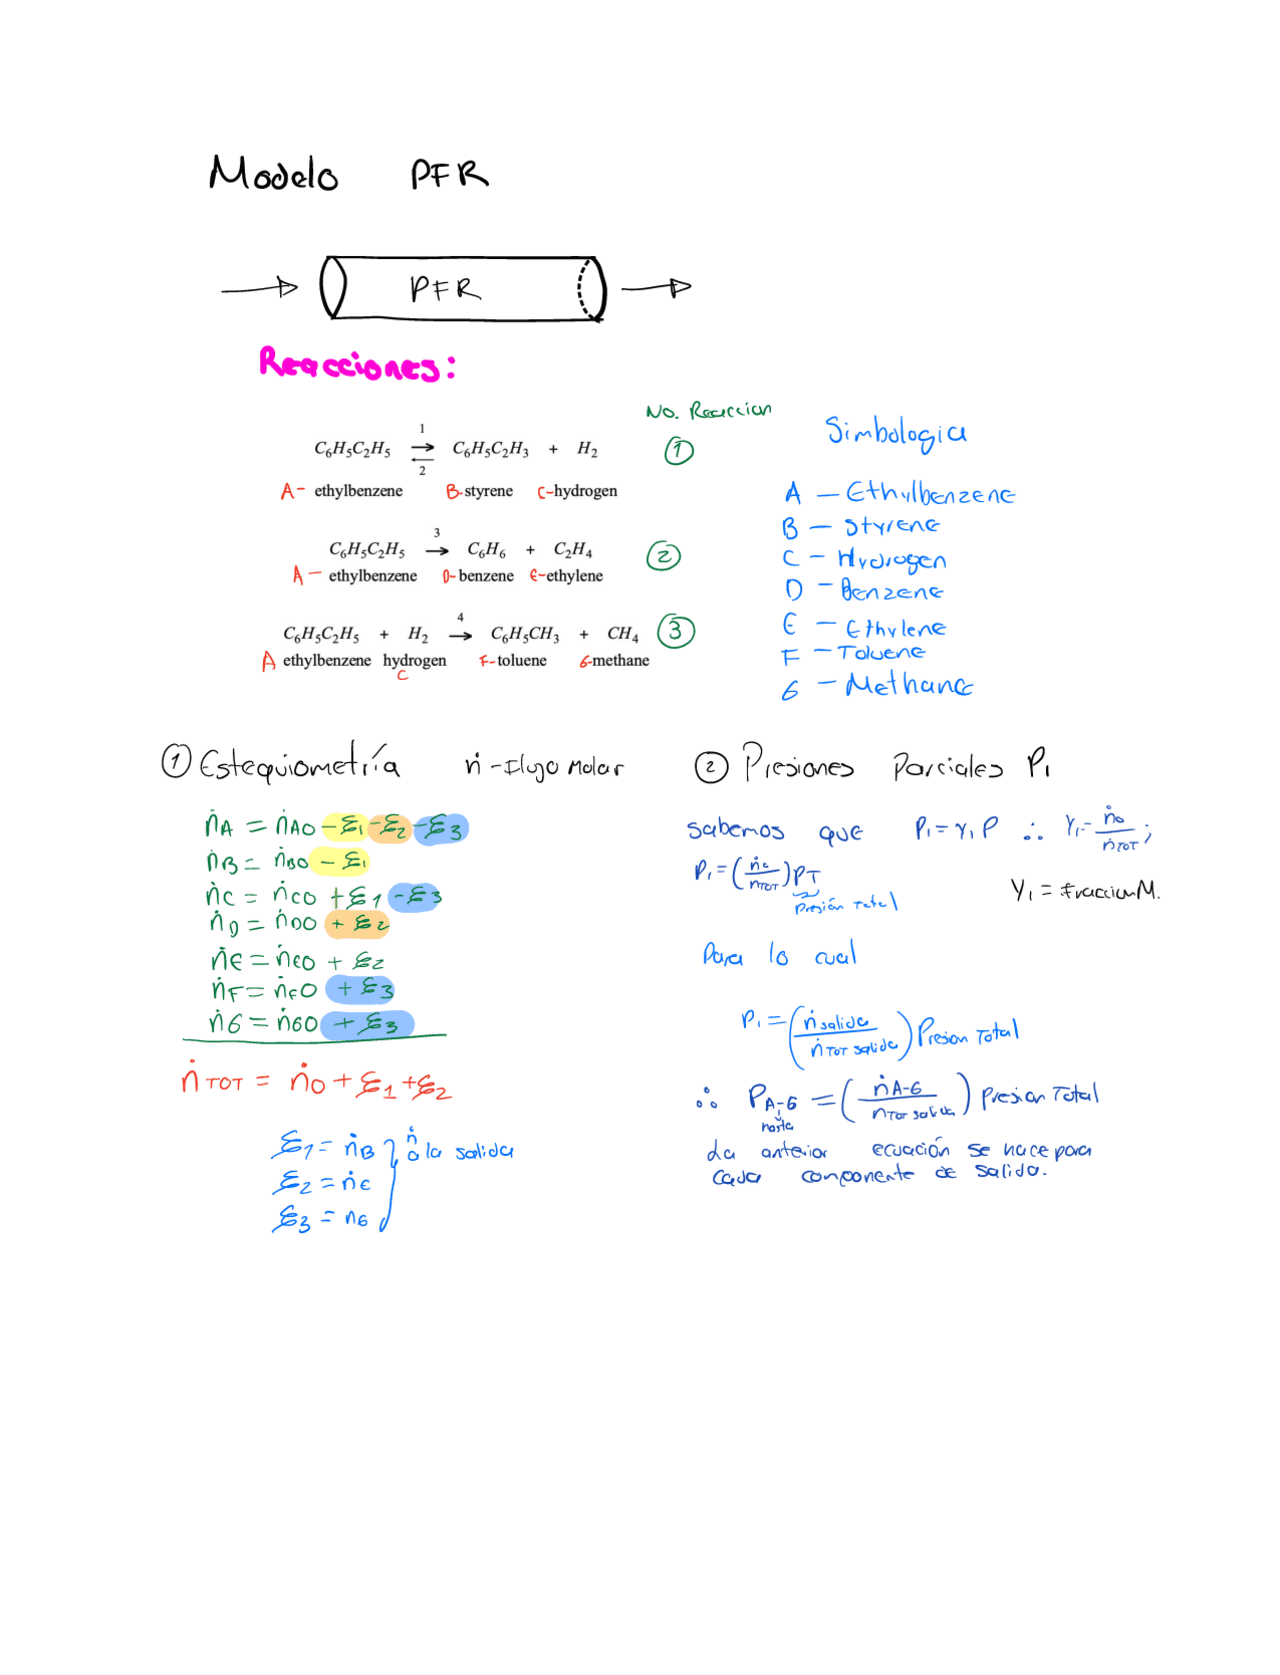 Modelo PFR
PFR
Reacciones:
No. Reaccion
1
C₆H₅C₂H₅ ⇌ C₆H₅C₂H₃ + H₂ ①
2
A- ethylbenzene B-styrene C-hydrogen
3
C₆H₅C₂H₅ → C₆H₆ + C₂H₄ ②
A- ethylbenzene D-benzene E-ethylene
4
C₆H₅C₂H₅ + H₂ → C₆H₅CH₃ + CH₄ ③
A ethylbenzene hydrogen F-toluene G-methane
C
Simbologia
A - Ethylbenzene
B - Styrene
C - Hydrogen
D - Benzene
E - Ethylene
F - Toluene
G - Methane
① Estequiometría ṅ-Flujo Molar
ṅA = ṅA0 - ε1 - ε2 - ε3
ṅB = ṅB0 - ε1
ṅC = ṅC0 + ε1 - ε3
ṅD = ṅD0 + ε2
ṅE = ṅE0 + ε2
ṅF = ṅF0 + ε3
ṅG = ṅG0 + ε3
ṅTOT = ṅ0 + ε1 + ε2
ε1 = ṅB
ε2 = ṅE
ε3 = nG
ṅ a la salida
② Presiones Parciales Pi
sabemos que Pi = Yi P ∴ Yi = ṅo/ṅTOT;
Pi = (ṅc/ṅTOT) PT
Presión Total
Yi = fraccion M.
Para lo cual
Pi = (ṅ salida / ṅ TOT salida) Presion Total
∴ PA-G = (ṅA-G / nTOT salida) Presion Total
hasta
La anterior ecuación se hace para
cada componente de salida.